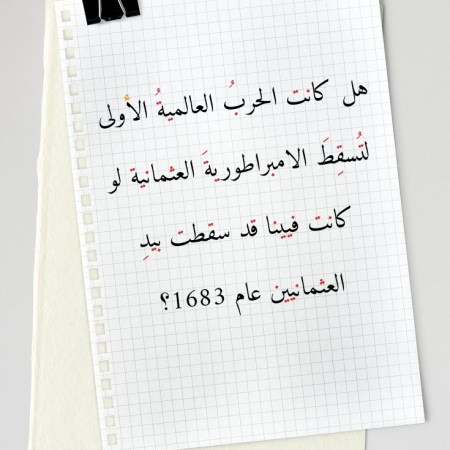 هل كانت الحربُ العالميةُ الأولى
لتُسقِطَ الامبراطوريةَ العثمانية لو
كانت فيينا قد سقطت بيدِ
العثمانيين عام 1683؟